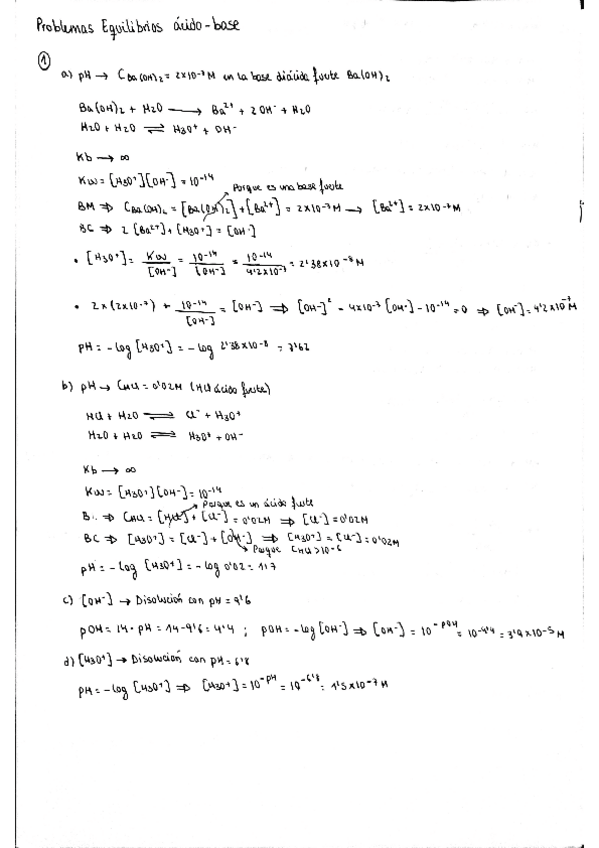 Problemas Equilibrios ácido-base
①
a) pH → C Ba(OH)₂ = 2x10⁻⁷ M en la base diácida fuerte Ba(OH)₂
Ba(OH)₂ + H₂O → Ba²⁺ + 2 OH⁻ + H₂O
H₂O + H₂O ⇌ H₃O⁺ + OH⁻
Kb → ∞
Kw = [H₃O⁺][OH⁻] = 10⁻¹⁴
Porque es una base fuerte
BM ⇒ C Ba(OH)₂ = [Ba(OH)₂] + [Ba²⁺] = 2x10⁻⁷ M → [Ba²⁺] = 2x10⁻⁷ M
BC ⇒ 2 [Ba²⁺] + [H₃O⁺] = [OH⁻]
• [H₃O⁺] = Kw/[OH⁻] = 10⁻¹⁴/[OH⁻] = 10⁻¹⁴/4'2x10⁻⁷ = 2'38x10⁻⁸ M
• 2x(2x10⁻⁷) + 10⁻¹⁴/[OH⁻] = [OH⁻] ⇒ [OH⁻]² - 4x10⁻⁷ [OH⁻] - 10⁻¹⁴ = 0 ⇒ [OH⁻] = 4'2x10⁻⁷ M
pH = -log [H₃O⁺] = -log 2'38x10⁻⁸ = 7'62
b) pH → CHCl = 0'02M (HCl ácido fuerte)
HCl + H₂O ⇌ Cl⁻ + H₃O⁺
H₂O + H₂O ⇌ H₃O⁺ + OH⁻
Kb → ∞
Kw = [H₃O⁺][OH⁻] = 10⁻¹⁴
Porque es un ácido fuerte
B.. ⇒ CHCl = [HCl] + [Cl⁻] = 0'02M ⇒ [Cl⁻] = 0'02M
BC ⇒ [H₃O⁺] = [Cl⁻] + [OH⁻] ⇒ [H₃O⁺] = [Cl⁻] = 0'02M
Porque CHCl > 10⁻⁶
pH = -log [H₃O⁺] = -log 0'02 = 1'7
c) [OH⁻] → Disolución con pH = 9'6
pOH = 14 - pH = 14 - 9'6 = 4'4 ; pOH = -log [OH⁻] ⇒ [OH⁻] = 10⁻ᵖᴼᴴ = 10⁻⁴'⁴ = 3'9x10⁻⁵ M
d) [H₃O⁺] → Disolución con pH = 6'8
pH = -log [H₃O⁺] ⇒ [H₃O⁺] = 10⁻ᵖᴴ = 10⁻⁶'⁸ = 1'5x10⁻⁷ M